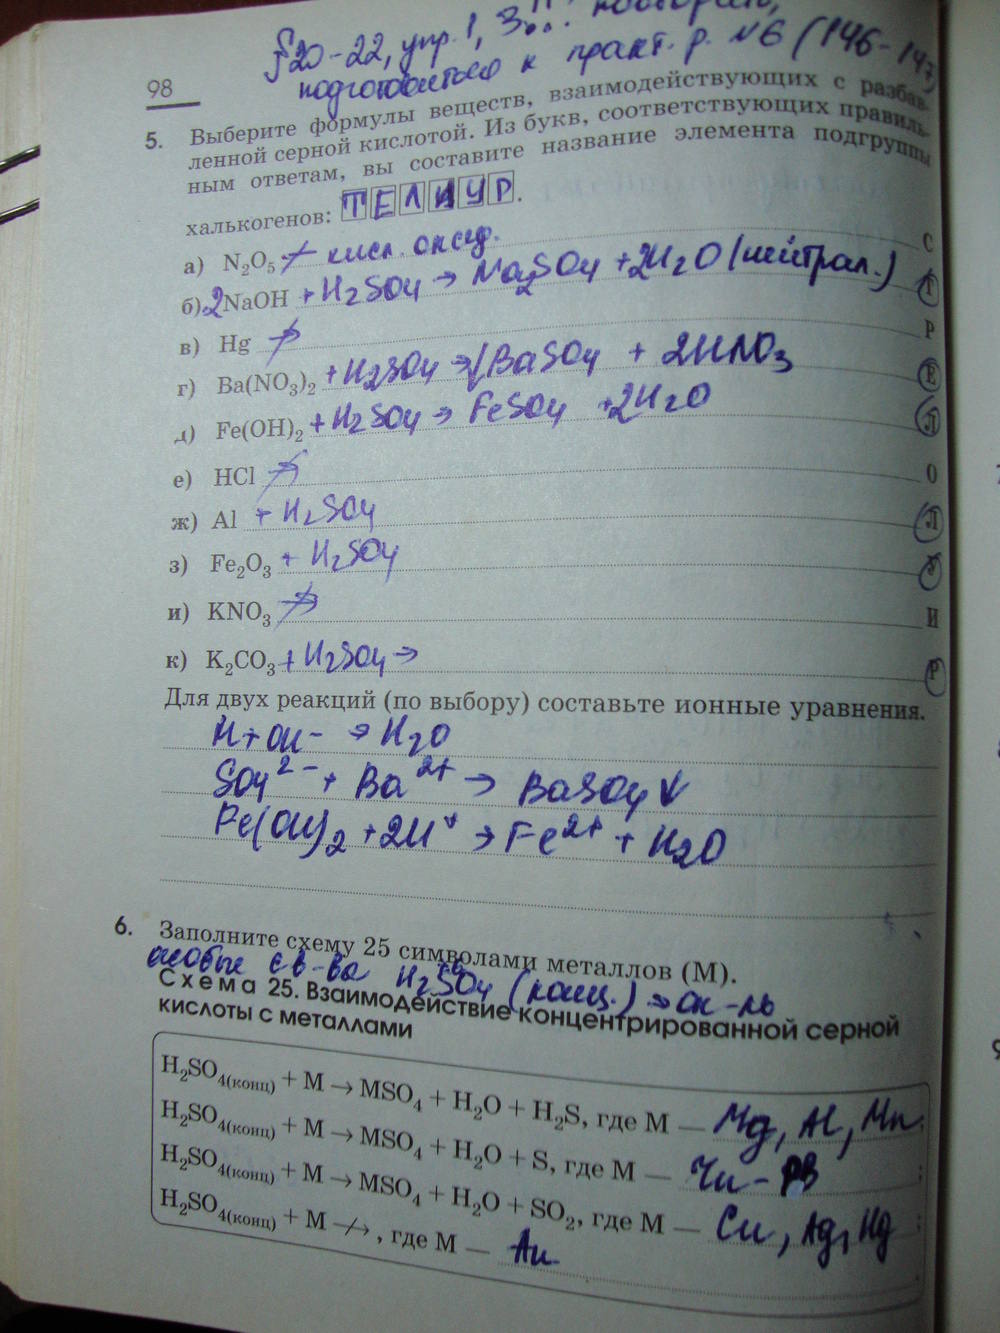 §20-22, упр. 1, 3... повторить,
подготовиться к практ. р. №6 (146-147)
98
5. Выберите формулы веществ, взаимодействующих с разбав-
ленной серной кислотой. Из букв, соответствующих правиль-
ным ответам, вы составите название элемента подгруппы
халькогенов: ТЕЛЛУР.
а) N₂O₅ ↛ кисл. оксид. С
б) 2NaOH + H₂SO₄ → Na₂SO₄ + 2H₂O (нейтрал.) Т
в) Hg ↛ Р
г) Ba(NO₃)₂ + H₂SO₄ → ↓BaSO₄ + 2HNO₃ Е
д) Fe(OH)₂ + H₂SO₄ → FeSO₄ + 2H₂O Л
е) HCl ↛ О
ж) Al + H₂SO₄ Л
з) Fe₂O₃ + H₂SO₄ У
и) KNO₃ ↛ И
к) K₂CO₃ + H₂SO₄ → Р
Для двух реакций (по выбору) составьте ионные уравнения.
H+ OH- → H₂O
SO₄²⁻ + Ba²⁺ → BaSO₄↓
Fe(OH)₂ + 2H⁺ → Fe²⁺ + H₂O
6. Заполните схему 25 символами металлов (М).
особые св-ва H₂SO₄ (конц.) → ок-ль
Схема 25. Взаимодействие концентрированной серной
кислоты с металлами
H₂SO₄(конц) + М → МSO₄ + H₂O + H₂S, где М — Mg, Al, Mn;
H₂SO₄(конц) + М → МSO₄ + H₂O + S, где М — Zn - Pb;
H₂SO₄(конц) + М → МSO₄ + H₂O + SO₂, где М — Cu, Ag, Hg;
H₂SO₄(конц) + М ↛ , где М — Au.